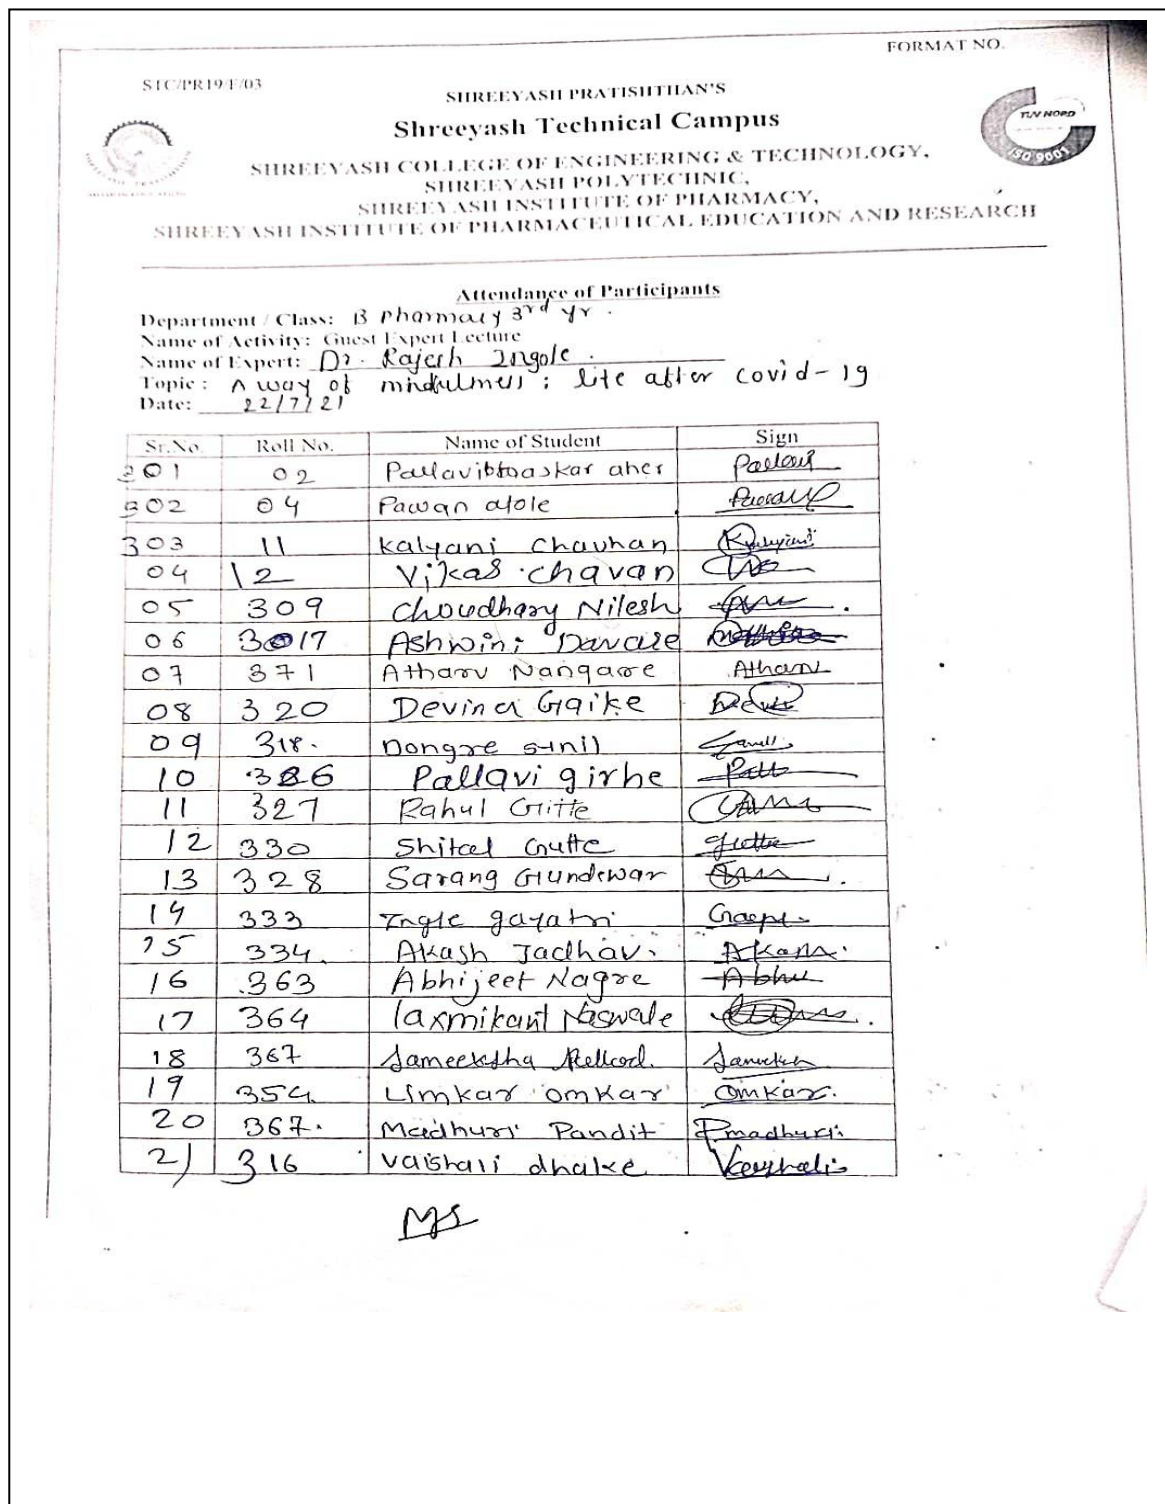 FORMAT NO.
STC/PR19/F/03
SHREEYASH PRATISHTHAN'S
Shreeyash Technical Campus
TUV NORD
ISO 9001
SHREEYASH COLLEGE OF ENGINEERING & TECHNOLOGY,
SHREEYASH POLYTECHNIC,
SHREEYASH INSTITUTE OF PHARMACY,
SHREEYASH INSTITUTE OF PHARMACEUTICAL EDUCATION AND RESEARCH
Attendance of Participants
Department / Class: B Pharmacy 3rd yr.
Name of Activity: Guest Expert Lecture
Name of Expert: Dr. Rajesh Ingole.
Topic: A way of mindfulness; life after covid-19
Date: 22/7/21
Sr.No. Roll No. Name of Student Sign
301 02 Pallavi bhaskar aher Pallavi
302 04 Pawan atole Pawan
303 11 Kalyani Chavhan Kalyani
04 12 Vikas Chavan
05 309 Choudhary Nilesh
06 3017 Ashwini Davare
07 371 Atharv Nangare Atharv
08 320 Devina Gaike
09 318. Dongre sunil
10 326 Pallavi girhe
11 327 Rahul Gitte
12 330 Shital Gutte Gutte
13 328 Sarang Gundewar
14 333 Ingle gayatri
15 334. Akash Jadhav. Akash.
16 363 Abhijeet Nagre
17 364 laxmikant
18 367 Sameeksha
19 354 Limkar omkar Omkar.
20 367. Madhuri Pandit P madhuri
21 316 vaishali dhake Vaishali